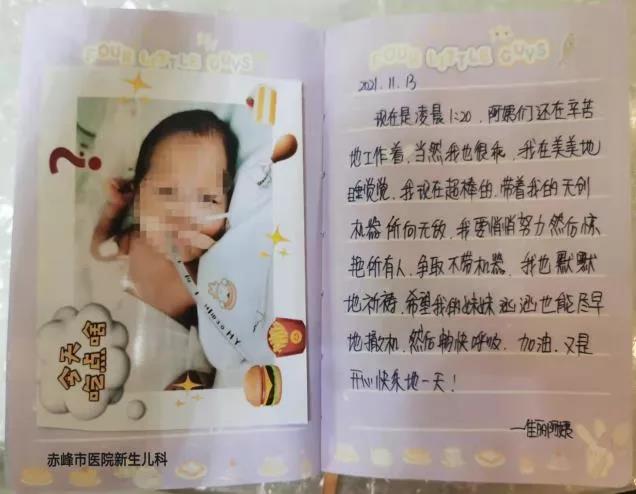 FOUR LITTLE GUYS
?
今天
吃点啥
赤峰市医院新生儿科
FOUR LITTLE GUYS
2021.11.13
现在是凌晨1:20,阿姨们还在辛苦
地工作着,当然我也很乖,我在美美地
睡觉觉,我现在超棒的,带着我的无创
机器所向无敌,我要悄悄努力然后惊
艳所有人,争取不带机器,我也默默
地祈祷,希望我的妹妹
也能尽早
地撤机,然后畅快呼吸,加油,又是
开心快乐地一天!
—佳丽阿姨